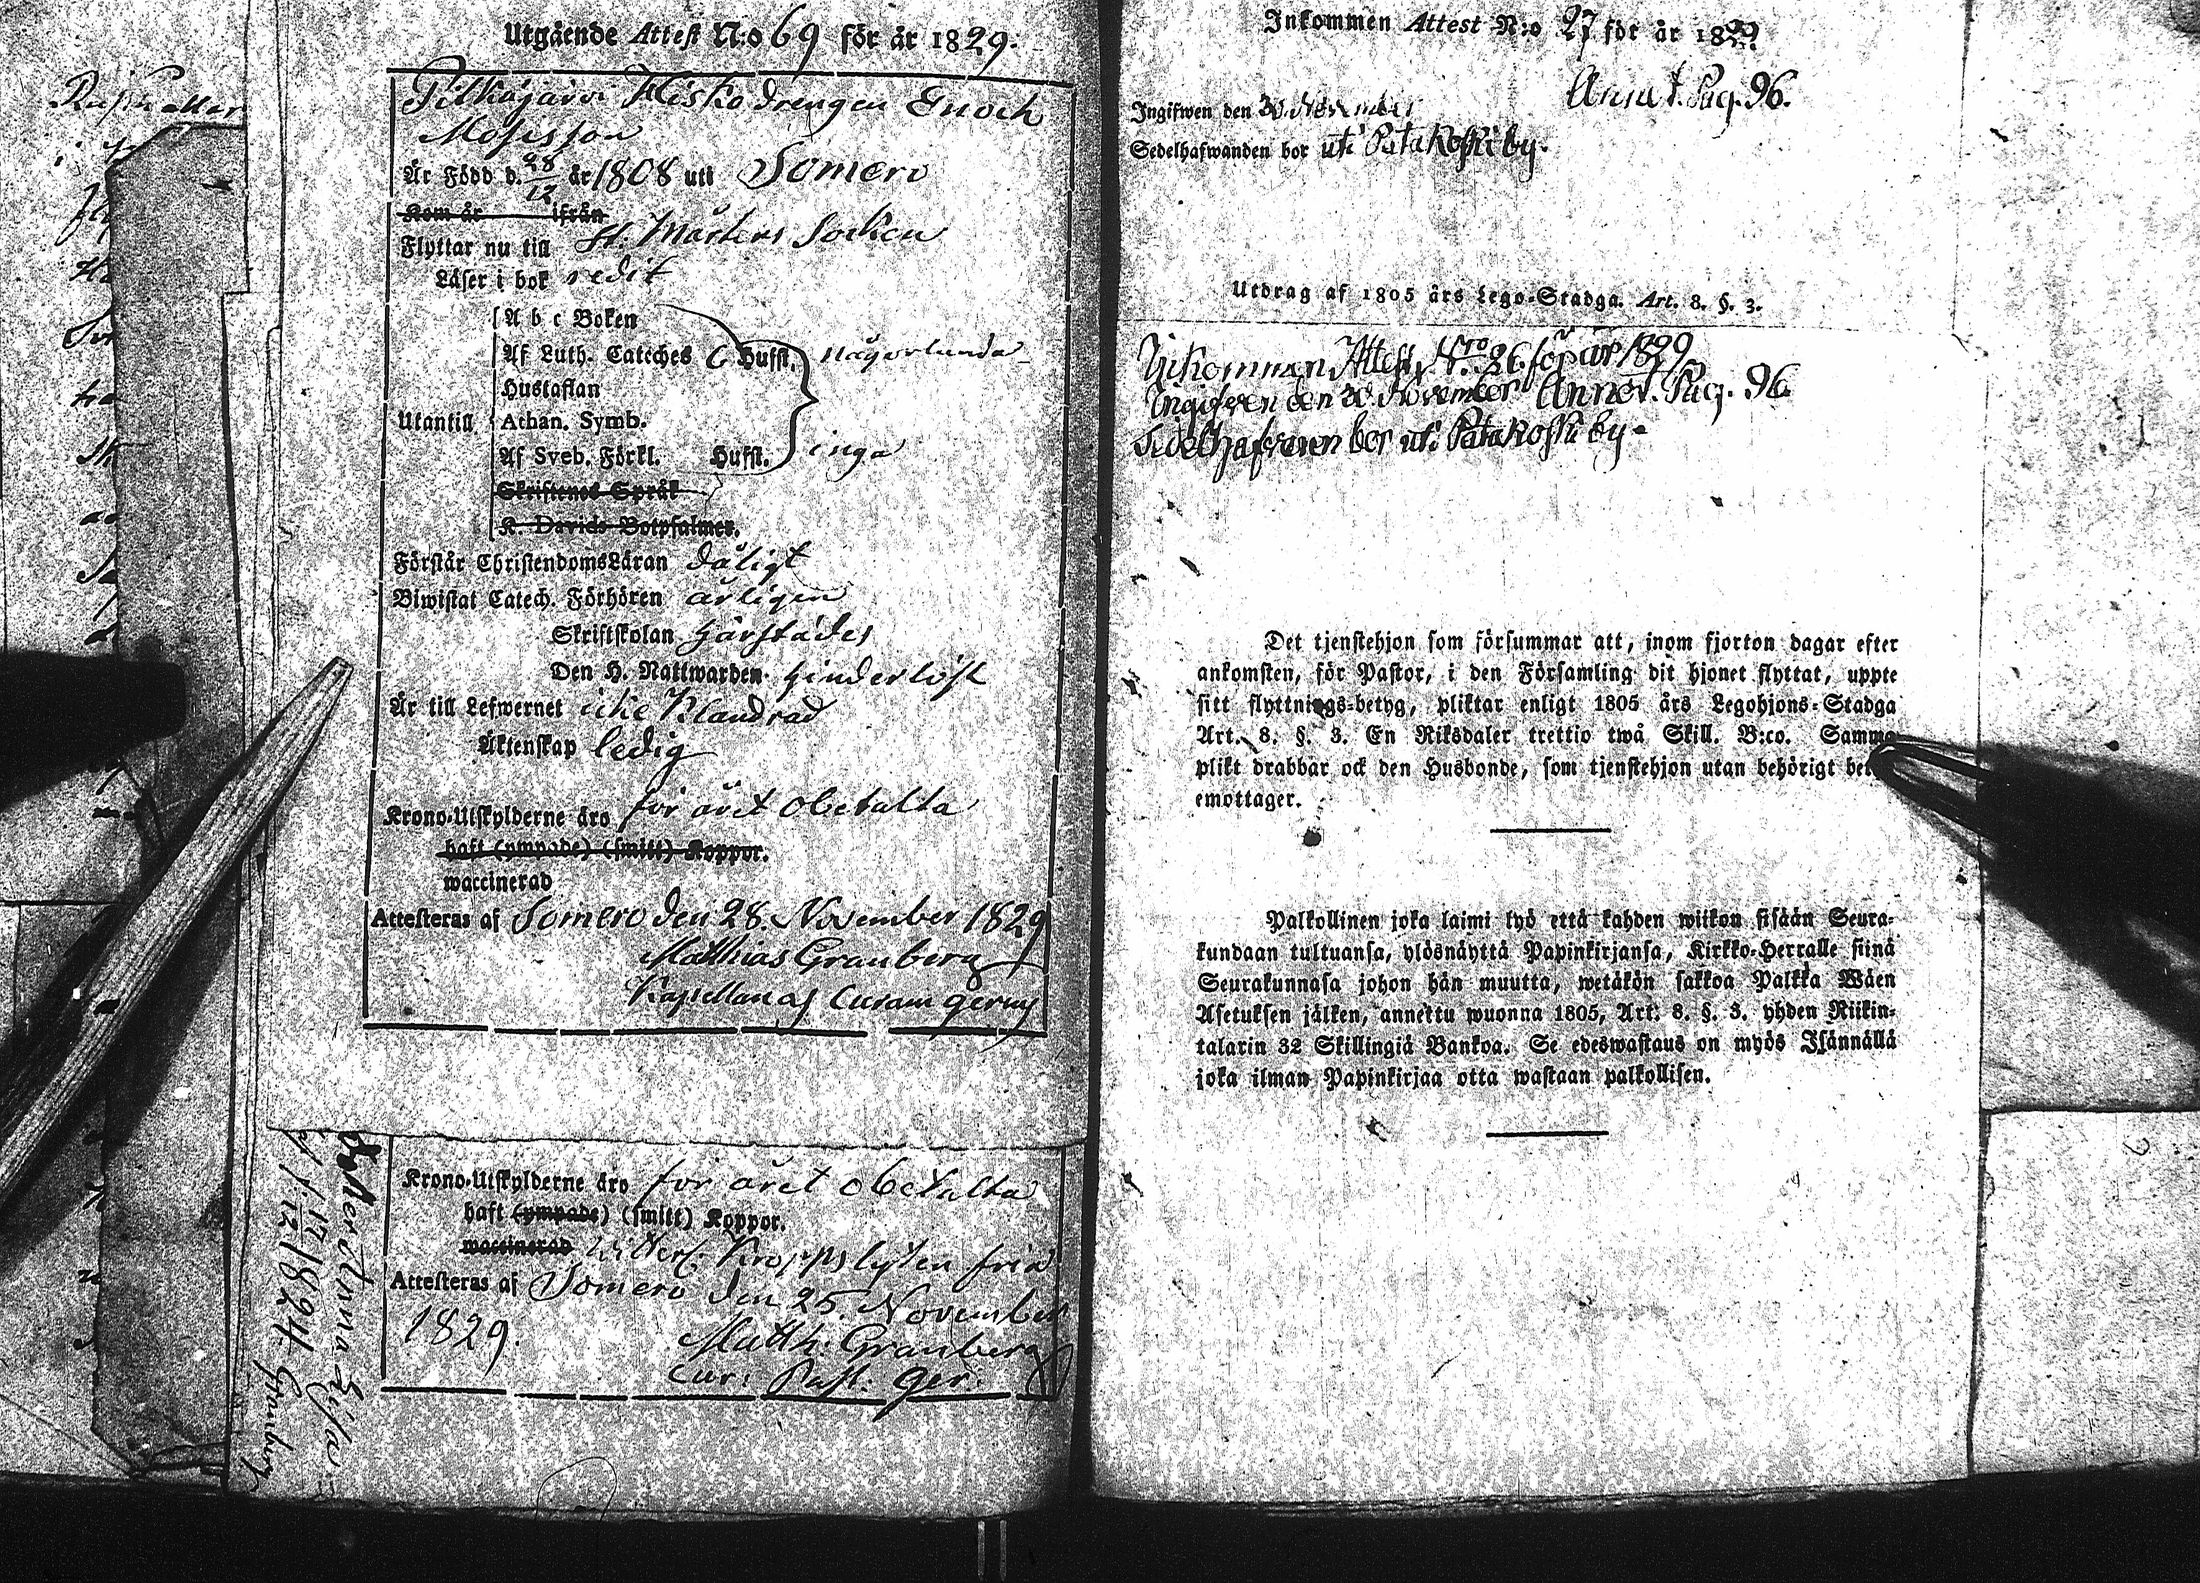 Utgående Attest N:o 69 för år 1829.
Pitkäjärvi Heisko drengen Enoch
Mosisson
Är Född d. 28/12 år 1808 uti Somero
Kom år ifrån
Flyttar nu till St: Mårtens Socken
Läser i bok redit
A b c Boken
Af Luth. Cateches 6 Hufst. någorlunda
Hustaflan
Utantill Athan. Symb.
Af Sveb. Förkl. Hufst. inga
Skriftenes Språk
K. Davids Botpsalmer.
Förstår ChristendomsLäran dåligt
Biwistat Catech. Förhören årligen
Skriftskolan härstädes
Den H. Nattwarden hinderlöst
Är till Lefwernet icke Klandrad
Äktenskap ledig
Krono-Utskylderne äro för året obetalta
haft (ympade) (smitt) Koppor.
waccinerad
Attesteras af Somero den 28. November 1829
Matthias Granberg
Kapellan ag Curam gerens
Krono-Utskylderne äro för året obetalta
haft (ympade) (smitt) Koppor.
waccinerad Kroppslyten fria
Attesteras af Somero den 25 November
1829. Matth: Granberg
Cur: Past: ger:
Dotter Anna Lisa
f. 17/12 1824 Granberg
Inkommen Attest N:o 27 för år 1829
Annot. Pag. 96.
Ingifwen den 30 November
Sedelhafwanden bor uti Patakoski by.
Utdrag af 1805 års Lego-Stadga. Art. 8. §. 3.
Inkommen Attest Nro 26 för år 1829
Ingifven den 30 November Annot. Pag. 96.
Sedelhafvaren bor uti Patakoski by.
Det tjenstehjon som försummar att, inom fjorton dagar efter
ankomsten, för Pastor, i den Församling dit hjonet flyttat, uppte
sitt flyttnings-betyg, pliktar enligt 1805 års Legohjons-Stadga
Art. 8. §. 3. En Riksdaler trettio twå Skill. B:co. Samma
plikt drabbar ock den Husbonde, som tjenstehjon utan behörigt
emottager.
Palkollinen joka laimi lyö että kahden wiikon sisään Seura-
kundaan tultuansa, ylösnäyttä Papinkirjansa, Kirkko-Herralle siinä
Seurakunnasa johon hän muutta, wetäkön sakkoa Palkka Wäen
Asetuksen jälken, annettu wuonna 1805, Art. 8. §. 3. yhden Riikin-
talarin 32 Skillingiä Bankoa. Se edeswastaus on myös Isännällä
joka ilman Papinkirjaa otta wastaan palkollisen.